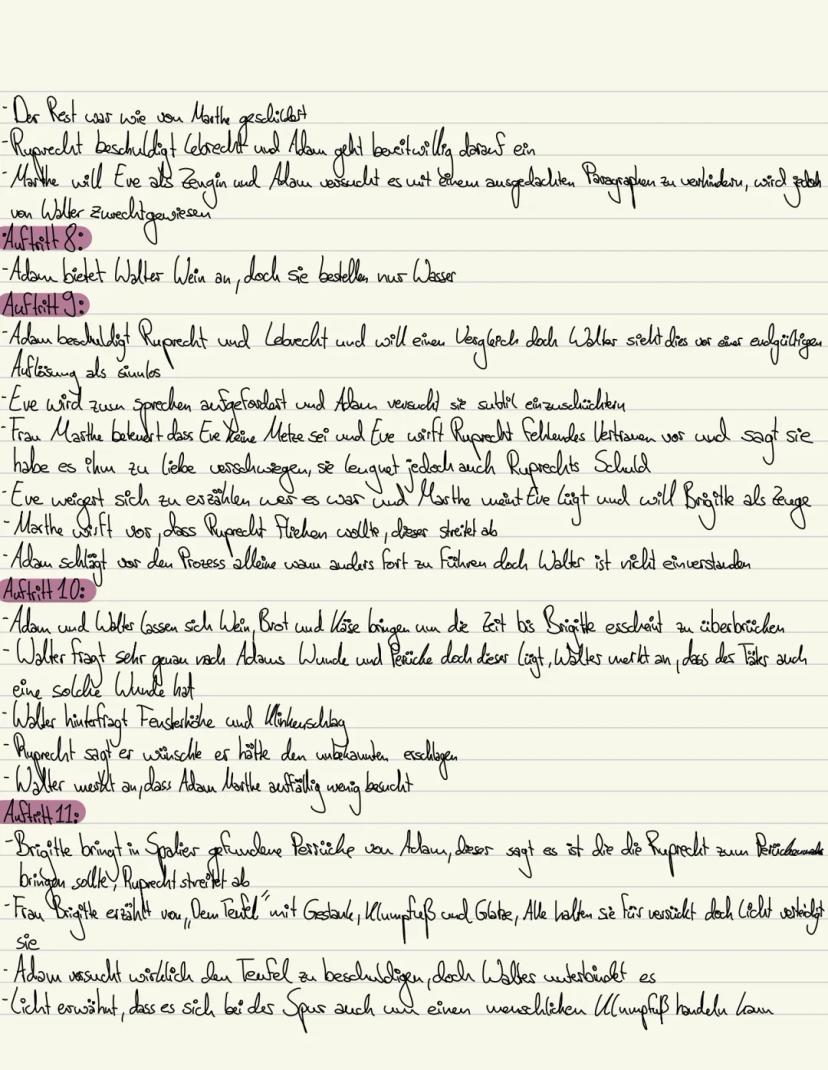 - Der Rest war wie von Marthe geschildert
- Ruprecht beschuldigt Lebrecht und Adam geht bereitwillig darauf ein
- Marthe will Eve als Zeugin und Adam versucht es mit einem ausgedachten Paragraphen zu verhindern, wird jedoch
von Walter zurechtgewiesen
Auftritt 8:
- Adam bietet Walter Wein an, doch sie bestellen nur Wasser
Auftritt 9:
- Adam beschuldigt Ruprecht und Lebrecht und will einen Vergleich doch Walter sieht dies vor einer endgültigen
Auflösung als sinnlos
- Eve wird zum sprechen aufgefordert und Adam versucht sie subtil einzuschüchtern
- Frau Marthe beteuert dass Eve keine Metze sei und Eve wirft Ruprecht fehlendes Vertrauen vor und sagt sie
habe es ihm zu liebe verschwiegen, sie leugnet jedoch auch Ruprechts Schuld
- Eve weigert sich zu erzählen wer es war und Marthe meint Eve lügt und will Brigitte als Zeuge
- Marthe wirft vor, dass Ruprecht fliehen wollte, dieser streitet ab
- Adam schlägt vor den Prozess alleine wann anders fort zu führen doch Walter ist nicht einverstanden
Auftritt 10:
- Adam und Walter lassen sich Wein, Brot und Käse bringen um die Zeit bis Brigitte erscheint zu überbrücken
- Walter fragt sehr genau nach Adams Wunde und Perücke doch dieser lügt, Walter merkt an, dass der Täter auch
eine solche Wunde hat
- Walter hinterfragt Fensterhöhe und Klinkenschlag
- Ruprecht sagt er wünschte er hätte den unbekannten erschlagen
- Walter merkt an, dass Adam Marthe auffällig wenig besucht
Auftritt 11:
- Brigitte bringt in Spalier gefundene Perrücke von Adam, dieser sagt es ist die die Ruprecht zum
bringen sollte, Ruprecht streitet ab
- Frau Brigitte erzählt von „Dem Teufel" mit Gestank, Klumpfuß und Glatze, Alle halten sie für verrückt doch Licht verteidigt
sie
- Adam versucht wirklich den Teufel zu beschuldigen, doch Walter unterbindet es
- Licht erwähnt, dass es sich bei der Spur auch um einen menschlichen Klumpfuß handeln kann